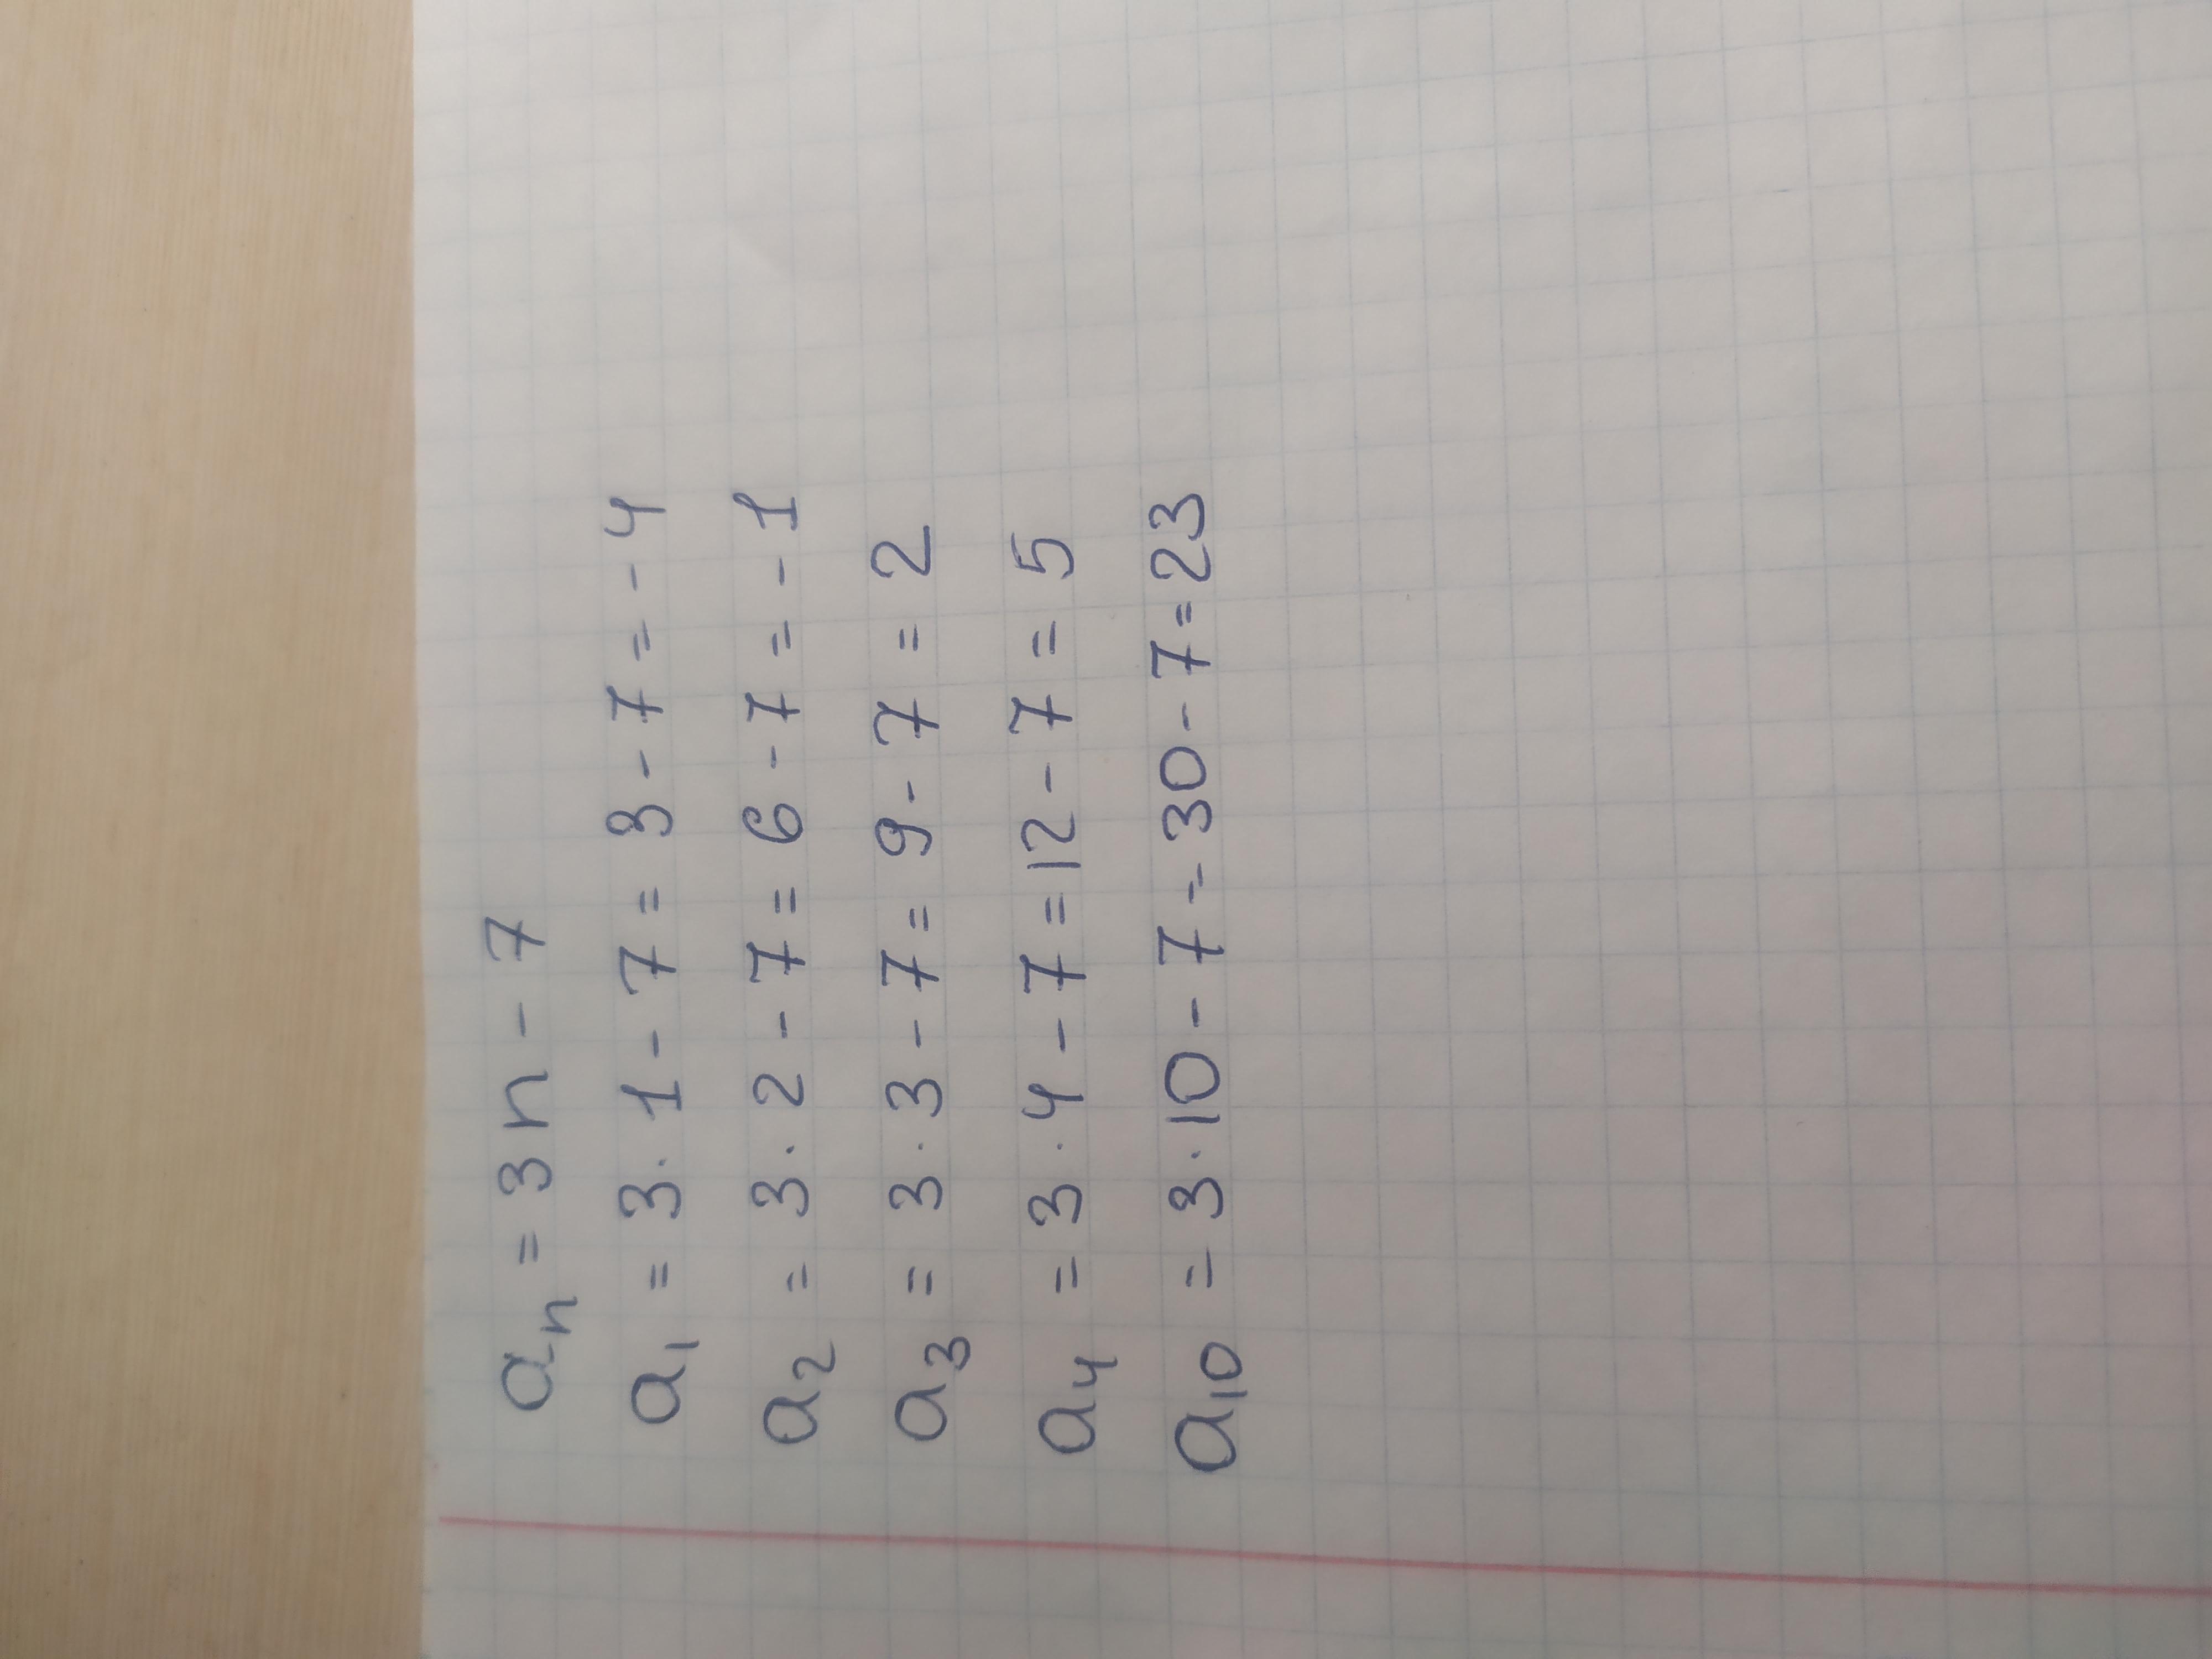 aₙ = 3n - 7
a₁ = 3 · 1 - 7 = 3 - 7 = - 4
a₂ = 3 · 2 - 7 = 6 - 7 = - 1
a₃ = 3 · 3 - 7 = 9 - 7 = 2
a₄ = 3 · 4 - 7 = 12 - 7 = 5
a₁₀ = 3 · 10 - 7 = 30 - 7 = 23